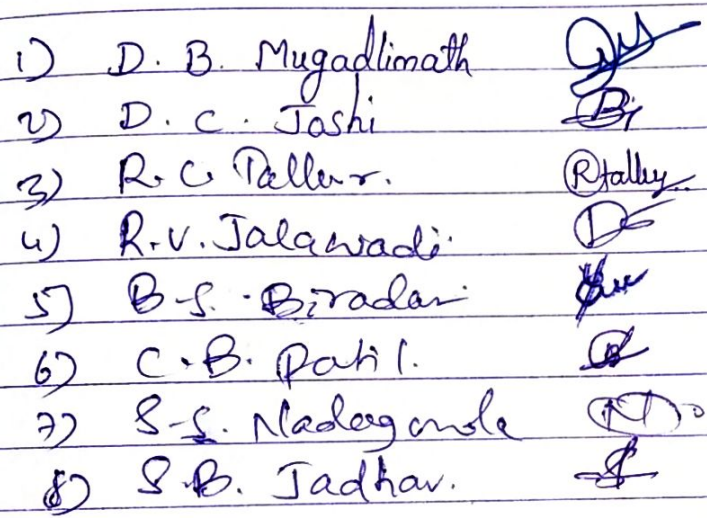 1) D. B. Mugadlimath
2) D. C. Joshi
3) R. C. Tallur. Rtallur
4) R. V. Jalawadi
5) B. S. Biradar
6) C. B. Patil.
7) S. S.
8) S. B. Jadhav.